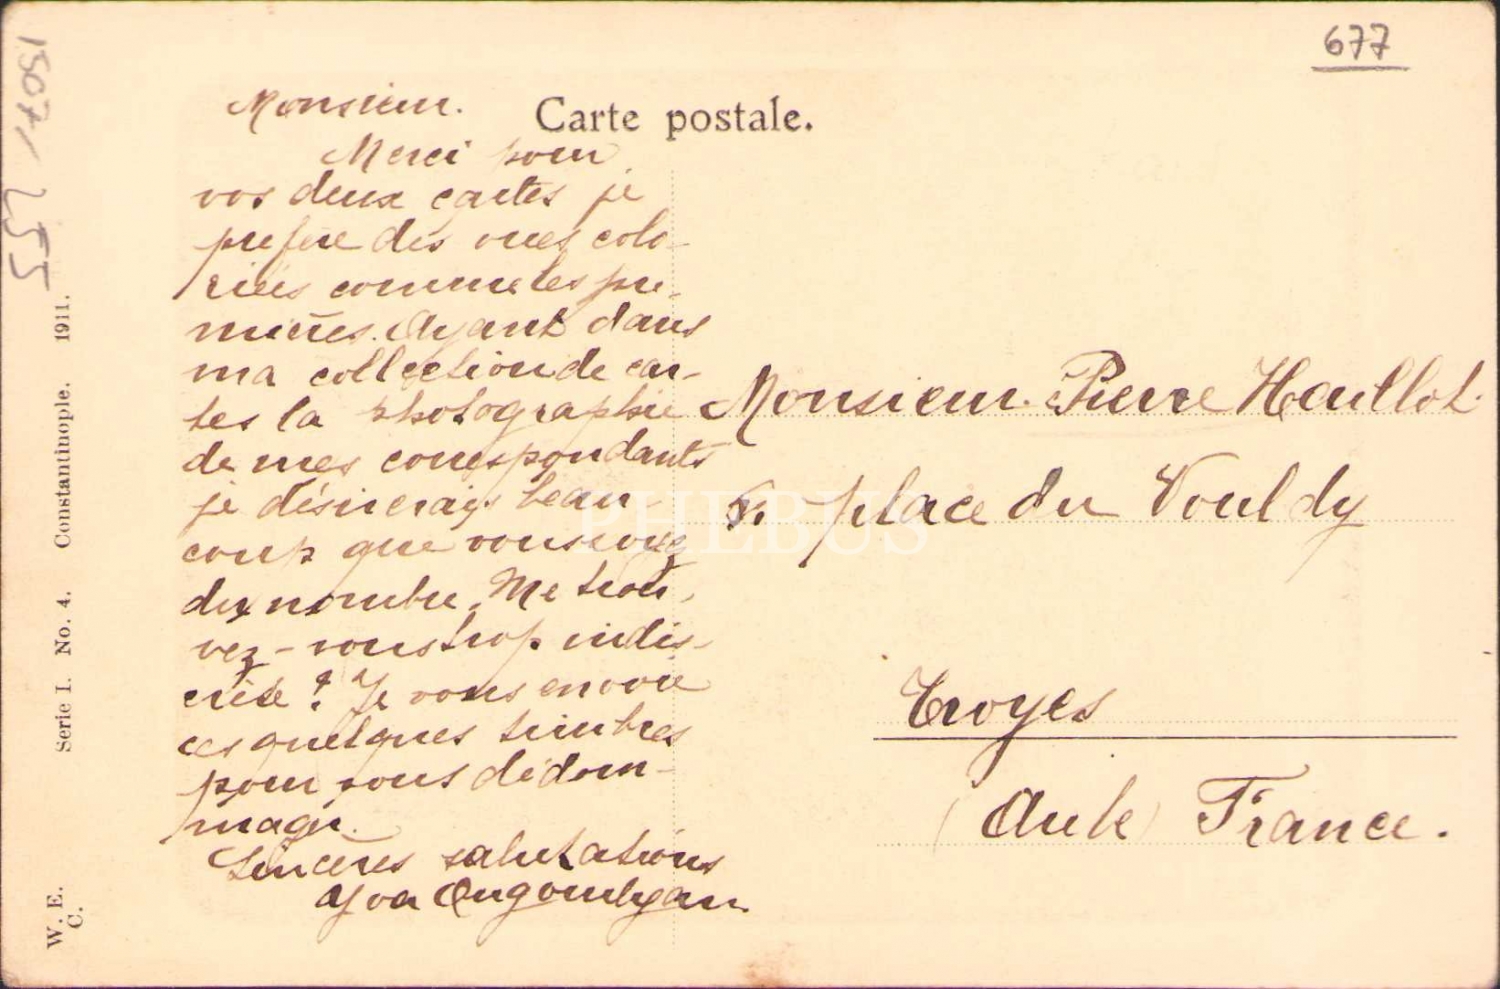 677
1507/255
Carte postale.
Monsieur.
Merci pour
vos deux cartes je
prefere des vues colo-
riées comme les pre-
mières. Ayant dans
ma collection de car-
tes la photographie
de mes correspondants
je désirerais beau-
coup que vous soyez
du nombre. Me trou-
vez-vous trop indis-
crète ? Je vous envoie
ces quelques timbres
pour vous dédom-
mager.
Sincères salutations
Monsieur Pierre Haillot
place du Vouldy
Troyes
(Aube) France.
Serie I. No. 4. Constantinople. 1911.
W. E.
C.
PHEBUS